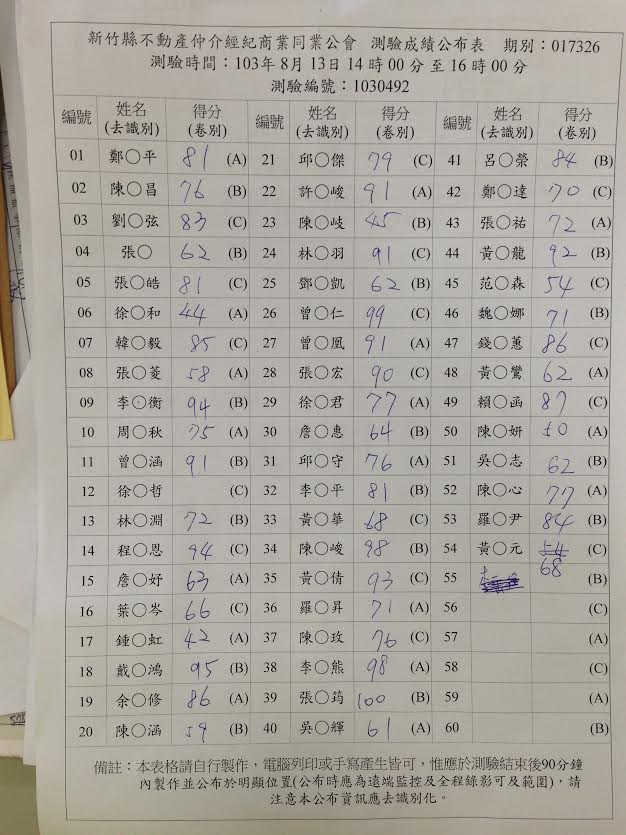 新竹縣不動產仲介經紀商業同業公會 測驗成績公布表 期別：017326
測驗時間：103年8月13日14時00分至16時00分
測驗編號：1030492
編號 姓名(去識別) 得分(卷別) 編號 姓名(去識別) 得分(卷別) 編號 姓名(去識別) 得分(卷別)
01 鄭○平 81 (A) 21 邱○傑 79 (C) 41 呂○榮 84 (B)
02 陳○昌 76 (B) 22 許○峻 91 (A) 42 鄭○達 70 (C)
03 劉○弦 83 (C) 23 陳○岐 45 (B) 43 張○祐 72 (A)
04 張○ 62 (B) 24 林○羽 91 (C) 44 黃○龍 92 (B)
05 張○皓 81 (C) 25 鄧○凱 62 (B) 45 范○森 54 (C)
06 徐○和 44 (A) 26 曾○仁 99 (C) 46 魏○娜 71 (B)
07 韓○毅 85 (C) 27 曾○凰 91 (A) 47 錢○蕙 86 (C)
08 張○菱 58 (A) 28 張○宏 90 (C) 48 黃○鶯 62 (A)
09 李○衡 94 (B) 29 徐○君 77 (A) 49 賴○函 87 (C)
10 周○秋 75 (A) 30 詹○惠 64 (B) 50 陳○妍 50 (A)
11 曾○涵 91 (B) 31 邱○守 76 (A) 51 吳○志 62 (B)
12 徐○哲 (C) 32 李○平 81 (B) 52 陳○心 77 (A)
13 林○淵 72 (B) 33 黃○華 68 (C) 53 羅○尹 84 (B)
14 程○恩 94 (C) 34 陳○峻 98 (B) 54 黃○元 54 (C)
15 詹○妤 63 (A) 35 黃○倩 93 (C) 55 68 (B)
16 葉○岑 66 (C) 36 羅○昇 71 (A) 56 (C)
17 鍾○虹 42 (A) 37 陳○玫 76 (C) 57 (A)
18 戴○鴻 95 (B) 38 李○熊 98 (A) 58 (C)
19 余○修 86 (A) 39 張○筠 100 (B) 59 (A)
20 陳○涵 59 (B) 40 吳○輝 61 (A) 60 (B)
備註：本表格請自行製作，電腦列印或手寫產生皆可，惟應於測驗結束後90分鐘
內製作並公布於明顯位置(公布時應為遠端監控及全程錄影可及範圍)，請
注意本公布資訊應去識別化。